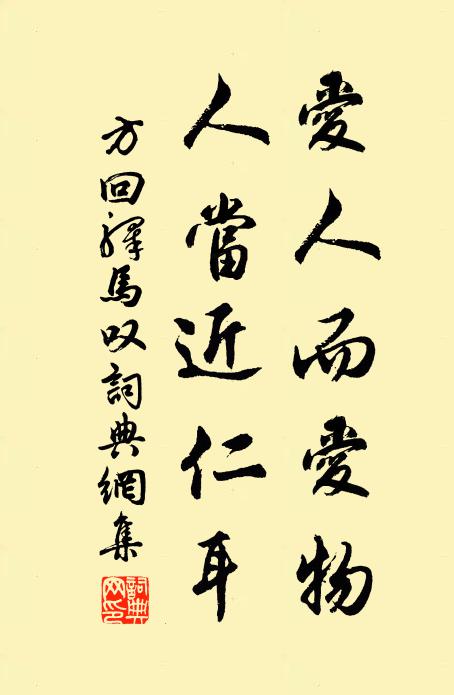 愛人而愛物
人當近仁耳
方回驛馬叹詞典網集
詞典網印